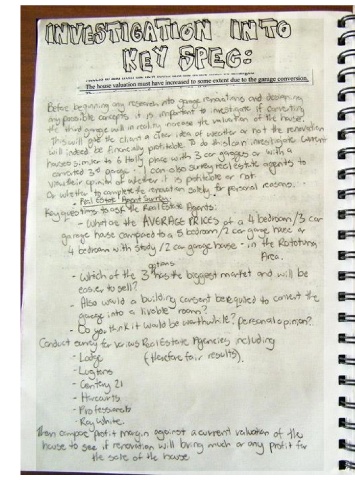 INVESTIGATION INTO
KEY SPEC:
The house valuation must have increased to some extent due to the garage conversion.
Before beginning any research into garage renovations and designing
any possible concepts it is important to investigate if converting
the third garage will in reality increase the valuation of the house.
This will give the client a clear idea of whether or not the renovation
will indeed be financially profitable. To do this I can investigate current
houses similar to 6 Holly Place with 3 car garages or with a
converted 3rd garage. I can also survey real estate agents to
value their opinion of whether it is profitable or not
or whether to complete the renovation solely for personal reasons.
- Real Estate Agent Survey:
Key questions to ask the Real Estate Agents:
- What are the AVERAGE PRICES of a 4 bedroom/3 car
garage house compared to a 5 bedroom/2 car garage house or
4 bedroom with study/2 car garage house - in the Rototuna
Area.
options
- Which of the 3 has the biggest market and will be
easier to sell?
- Also would a building consent be required to convert the
garage into a livable room?
- Do you think it would be worthwhile? personal opinion?
Conduct survey for various Real Estate Agencies including
- Lodge (therefore fair results).
- Lugtons
- Century 21
- Harcourts
- Professionals
- Ray White.
Then compare profit margin against a current valuation of the
house to see if renovation will bring much or any profit for
the sale of the house